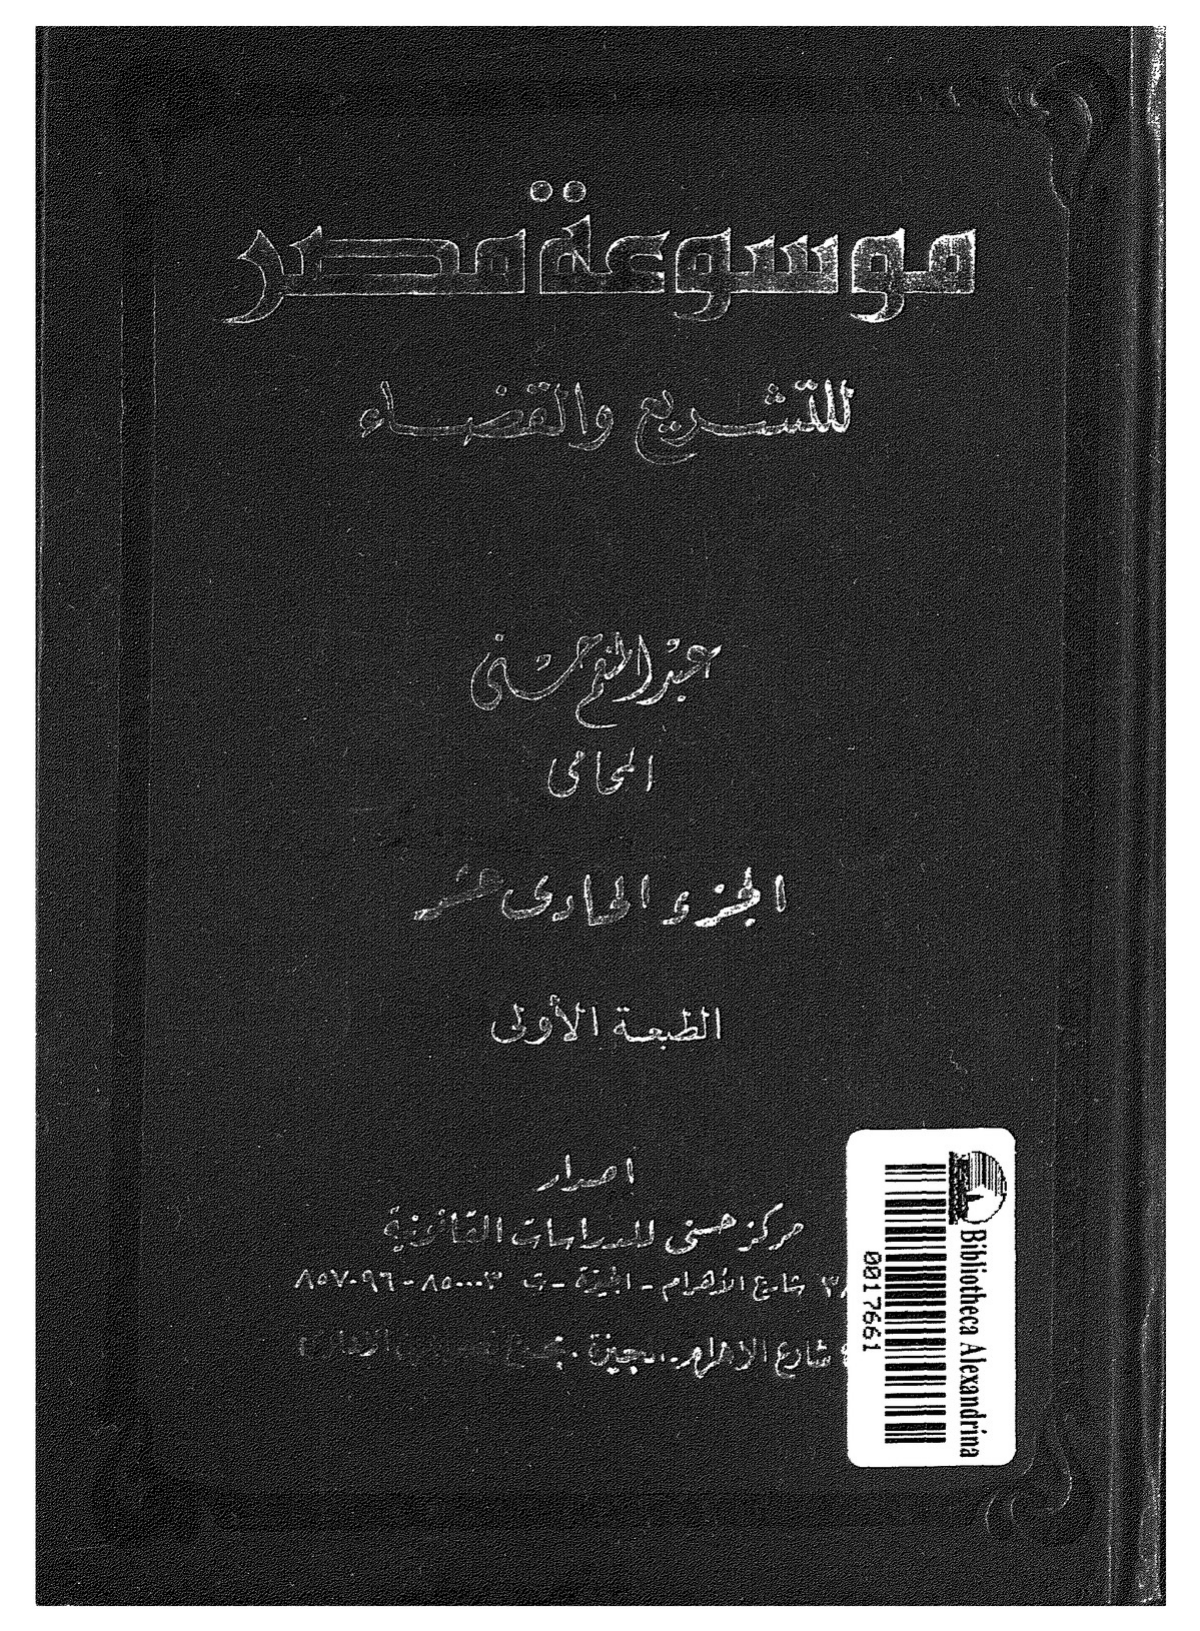 موسوعة مصر
للتشريع والقضاء
عبد المنعم حسنى
المحامى
الجزء الحادى عشر
الطبعة الأولى
اصدار
مركز حسنى للدراسات القانونية
شارع الأهرام - الجيزة - ت ٨٥٠٠٠٣ - ٨٥٧٠٩٦
شارع الاهرام - الجيزة .
Bibliotheca Alexandrina
0017661